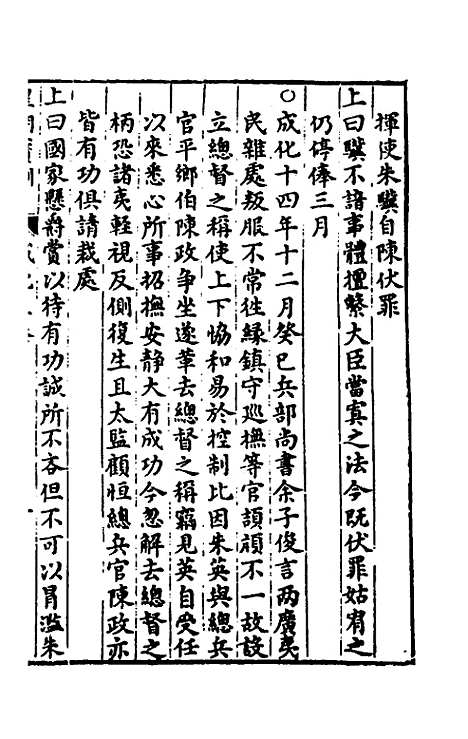 揮使朱驥自陳伏罪
上曰驥不諳事體擅繫大臣當寘之法今旣伏罪姑宥之
仍停俸三月
○成化十四年十二月癸巳兵部尚書余子俊言兩廣夷
民雜處叛服不常徃緣鎮守巡撫等官頡頏不一故設
立總督之稱使上下恊和易於控制比因朱英與總兵
官平鄉伯陳政争坐遂革去總督之稱竊見英自受任
以來悉心所事招撫安静大有成功今忽解去總督之
柄恐諸夷輕視反側復生且太監顧恒總兵官陳政亦
皆有功俱請裁處
上曰國家懸爵賞以待有功誠所不吝但不可以冒濫朱